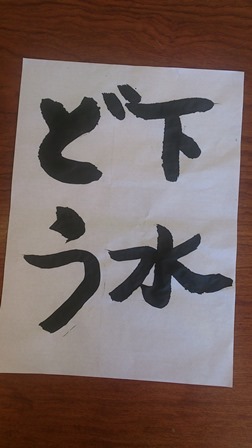 下水
どう